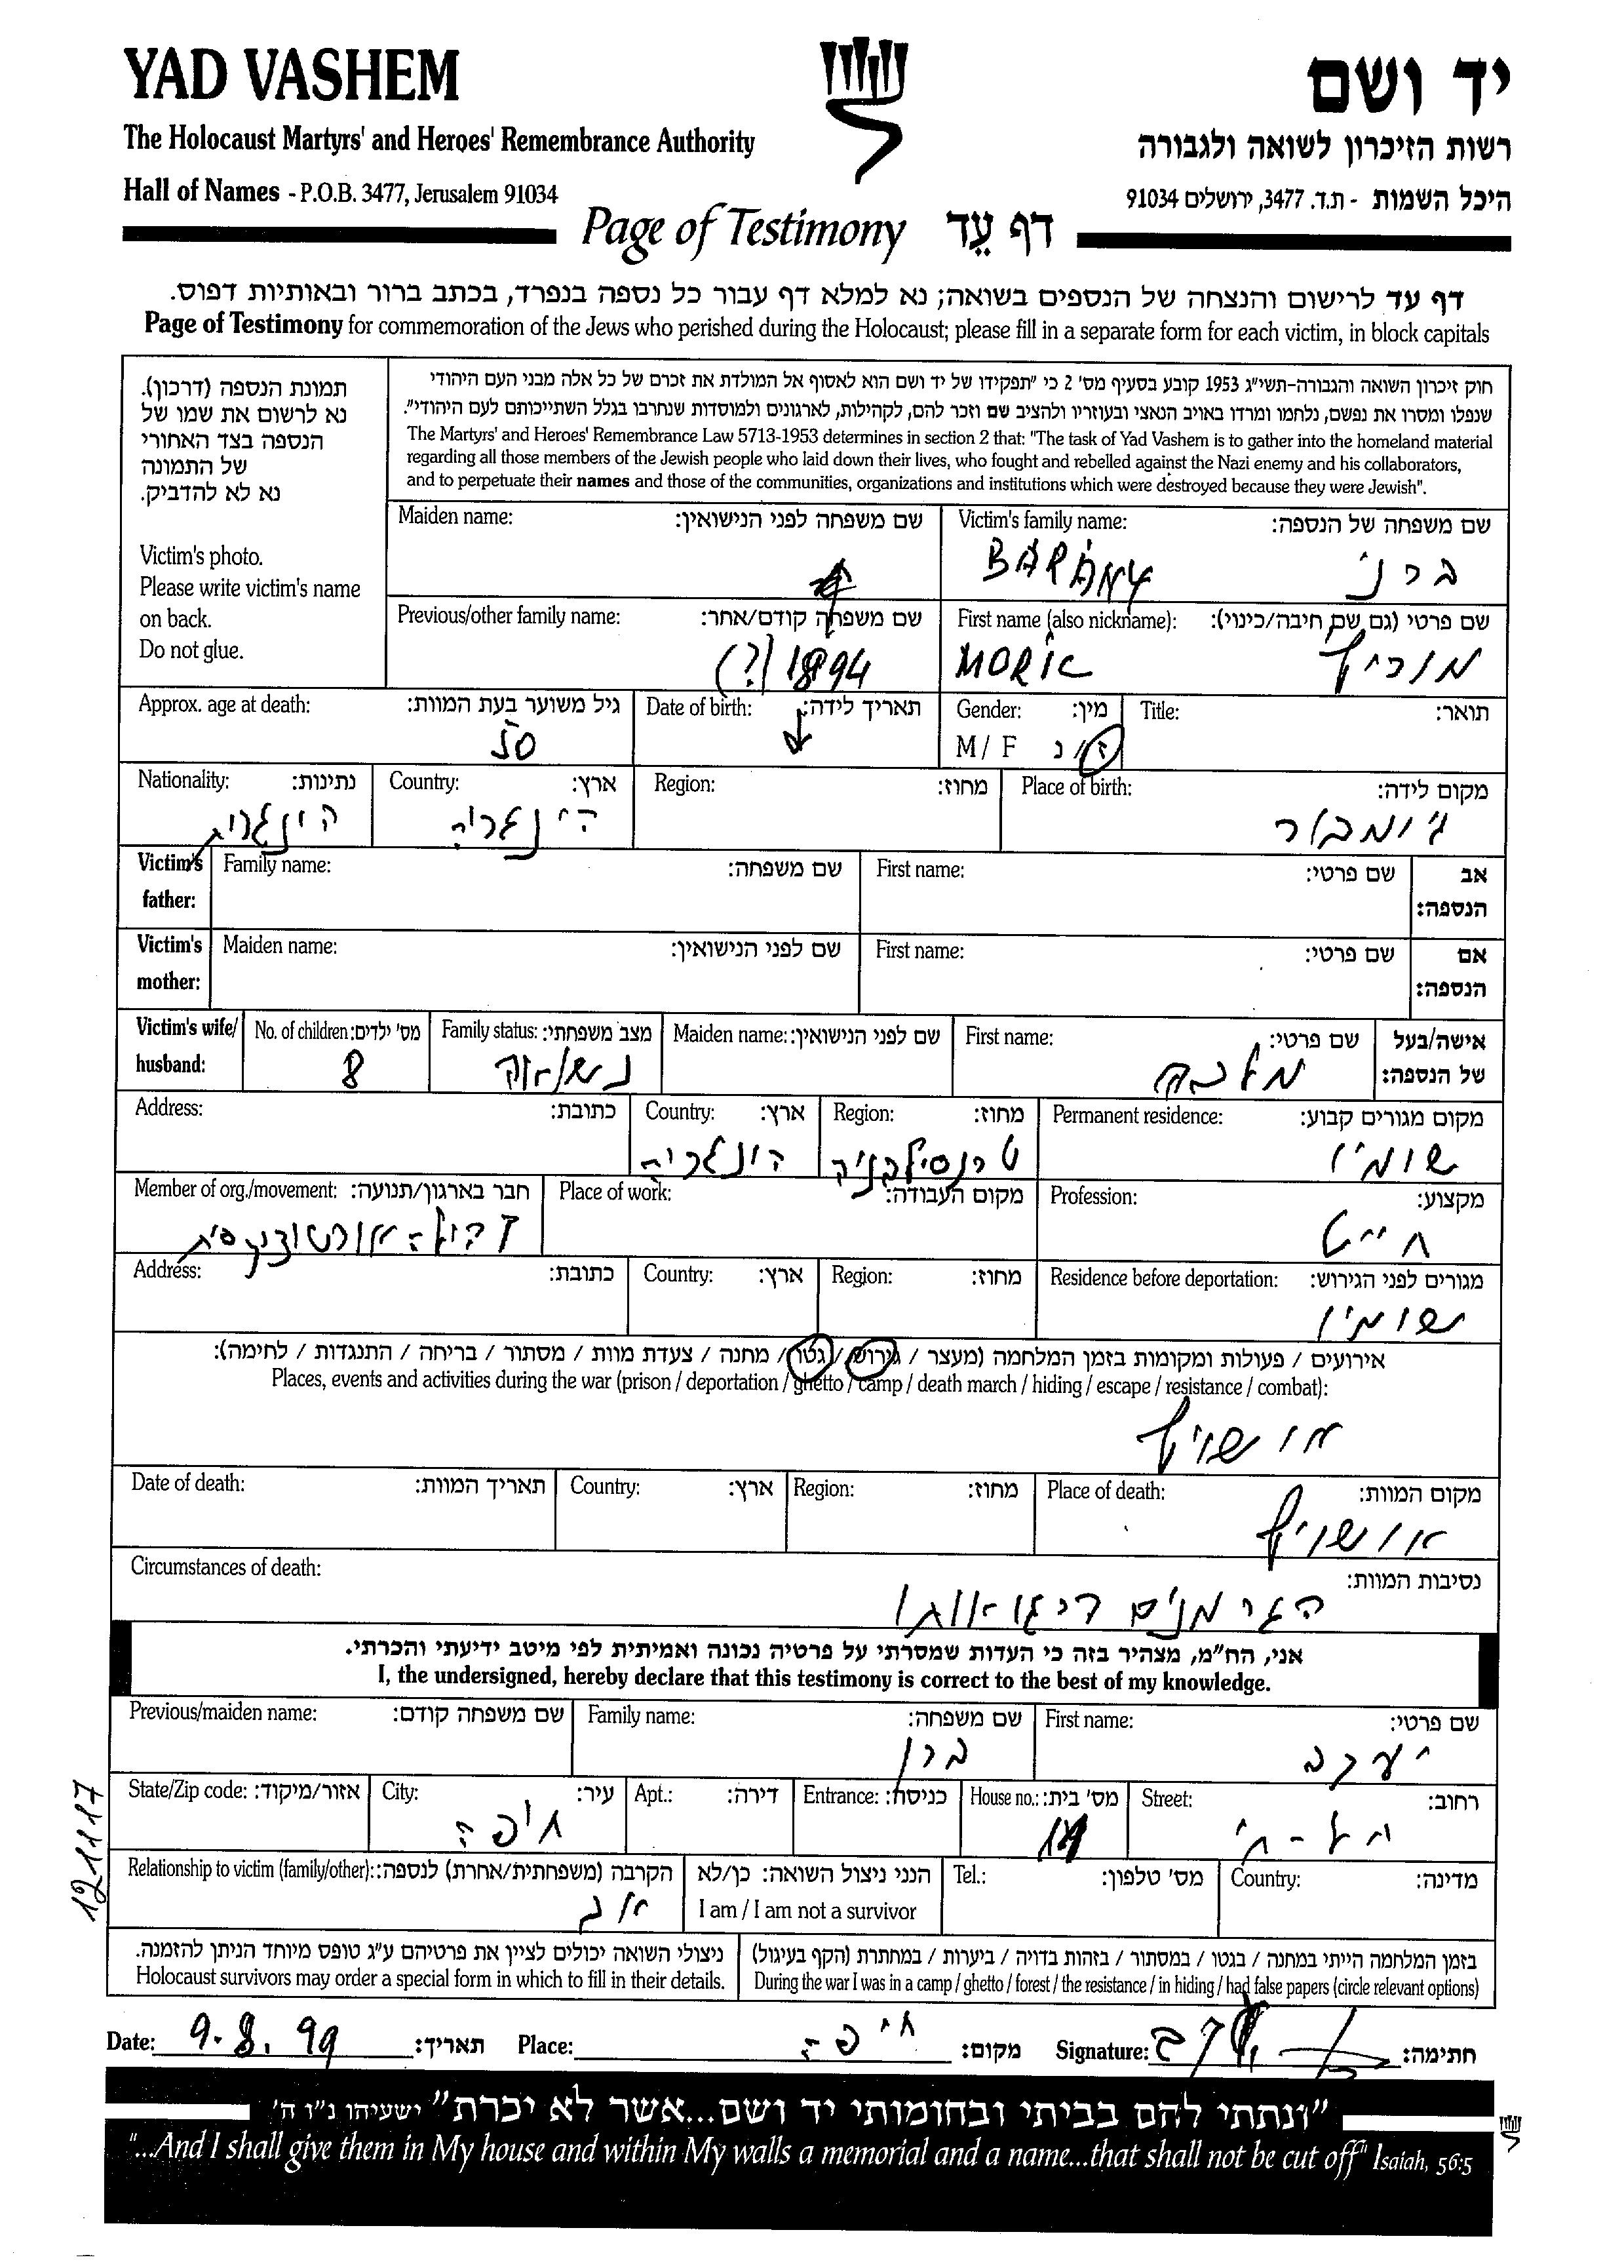 YAD VASHEM
יד ושם
The Holocaust Martyrs' and Heroes' Remembrance Authority
רשות הזיכרון לשואה ולגבורה
Hall of Names - P.O.B. 3477, Jerusalem 91034
היכל השמות - ת.ד. 3477, ירושלים 91034
Page of Testimony דף עֵד
דף עד לרישום והנצחה של הנספים בשואה; נא למלא דף עבור כל נספה בנפרד, בכתב ברור ובאותיות דפוס.
Page of Testimony for commemoration of the Jews who perished during the Holocaust; please fill in a separate form for each victim, in block capitals
תמונת הנספה (דרכון).
נא לרשום את שמו של
הנספה בצד האחורי
של התמונה
נא לא להדביק.
Victim's photo.
Please write victim's name
on back.
Do not glue.
חוק זיכרון השואה והגבורה-תשי"ג 1953 קובע בסעיף מס' 2 כי "תפקידו של יד ושם הוא לאסוף אל המולדת את זכרם של כל אלה מבני העם היהודי
שנפלו ומסרו את נפשם, נלחמו ומרדו באויב הנאצי ובעוזריו ולהציב שם וזכר להם, לקהילות, לארגונים ולמוסדות שנחרבו בגלל השתייכותם לעם היהודי".
The Martyrs' and Heroes' Remembrance Law 5713-1953 determines in section 2 that: "The task of Yad Vashem is to gather into the homeland material
regarding all those members of the Jewish people who laid down their lives, who fought and rebelled against the Nazi enemy and his collaborators,
and to perpetuate their names and those of the communities, organizations and institutions which were destroyed because they were Jewish".
Maiden name: שם משפחה לפני הנישואין:
Victim's family name: שם משפחה של הנספה:
BARÁNY ברני
Previous/other family name: שם משפחה קודם/אחר:
(?) 1894
First name (also nickname): שם פרטי (גם שם חיבה/כינוי):
MORIC מוריץ
Approx. age at death: גיל משוער בעת המוות:
50
Date of birth: תאריך לידה:
Gender: מין:
M / F ז / נ
Title: תואר:
Nationality: נתינות:
הונגרית
Country: ארץ:
הונגריה
Region: מחוז:
Place of birth: מקום לידה:
ג'ומבור
Victim's father:
Family name: שם משפחה:
First name: שם פרטי:
אב הנספה:
Victim's mother:
Maiden name: שם לפני הנישואין:
First name: שם פרטי:
אם הנספה:
Victim's wife/ husband:
No. of children: מס' ילדים:
8
Family status: מצב משפחתי:
נשוי
Maiden name: שם לפני הנישואין:
First name: שם פרטי:
מלכה
אישה/בעל של הנספה:
Address: כתובת:
Country: ארץ:
הונגריה
Region: מחוז:
טרנסילבניה
Permanent residence: מקום מגורים קבוע:
שומיו
Member of org./movement: חבר בארגון/תנועה:
קהילה אורטודוקסית
Place of work: מקום העבודה:
Profession: מקצוע:
חייט
Address: כתובת:
Country: ארץ:
Region: מחוז:
Residence before deportation: מגורים לפני הגירוש:
שומיו
אירועים / פעולות ומקומות בזמן המלחמה (מעצר / גירוש / גטו / מחנה / צעדת מוות / מסתור / בריחה / התנגדות / לחימה):
Places, events and activities during the war (prison / deportation / ghetto / camp / death march / hiding / escape / resistance / combat):
אושויץ
Date of death: תאריך המוות:
Country: ארץ:
Region: מחוז:
Place of death: מקום המוות:
אושויץ
Circumstances of death: נסיבות המוות:
הגרמנים
אני, הח"מ, מצהיר בזה כי העדות שמסרתי על פרטיה נכונה ואמיתית לפי מיטב ידיעתי והכרתי.
I, the undersigned, hereby declare that this testimony is correct to the best of my knowledge.
Previous/maiden name: שם משפחה קודם:
Family name: שם משפחה:
ברן
First name: שם פרטי:
יעקב
State/Zip code: אזור/מיקוד:
City: עיר:
חיפה
Apt.: דירה:
Entrance: כניסה:
House no.: מס' בית:
Street: רחוב:
Relationship to victim (family/other): הקרבה (משפחתית/אחרת) לנספה:
הנני ניצול השואה: כן/לא
I am / I am not a survivor
Tel.: מס' טלפון:
Country: מדינה:
ניצולי השואה יכולים לציין את פרטיהם ע"ג טופס מיוחד הניתן להזמנה.
Holocaust survivors may order a special form in which to fill in their details.
בזמן המלחמה הייתי במחנה / בגטו / במסתור / בזהות בדויה / ביערות / במחתרת (הקף בעיגול)
During the war I was in a camp / ghetto / forest / the resistance / in hiding / had false papers (circle relevant options)
Date: 9.8.99 תאריך:
Place: חיפה מקום:
Signature: חתימה:
121117
"ונתתי להם בביתי ובחומותי יד ושם...אשר לא יכרת" ישעיהו נ"ו ה'
"...And I shall give them in My house and within My walls a memorial and a name...that shall not be cut off" Isaiah, 56:5